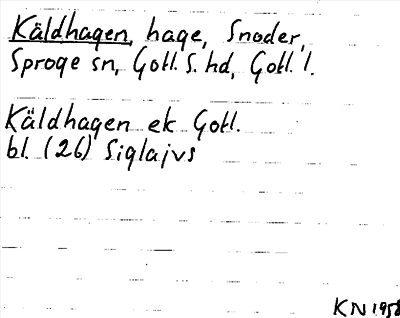 Käldhagen, hage, Snoder,
Sproge sn, Gotl. S. hd, Gotl. l.
Käldhagen ek Gotl.
bl. (26) Siglajvs
KN 1958